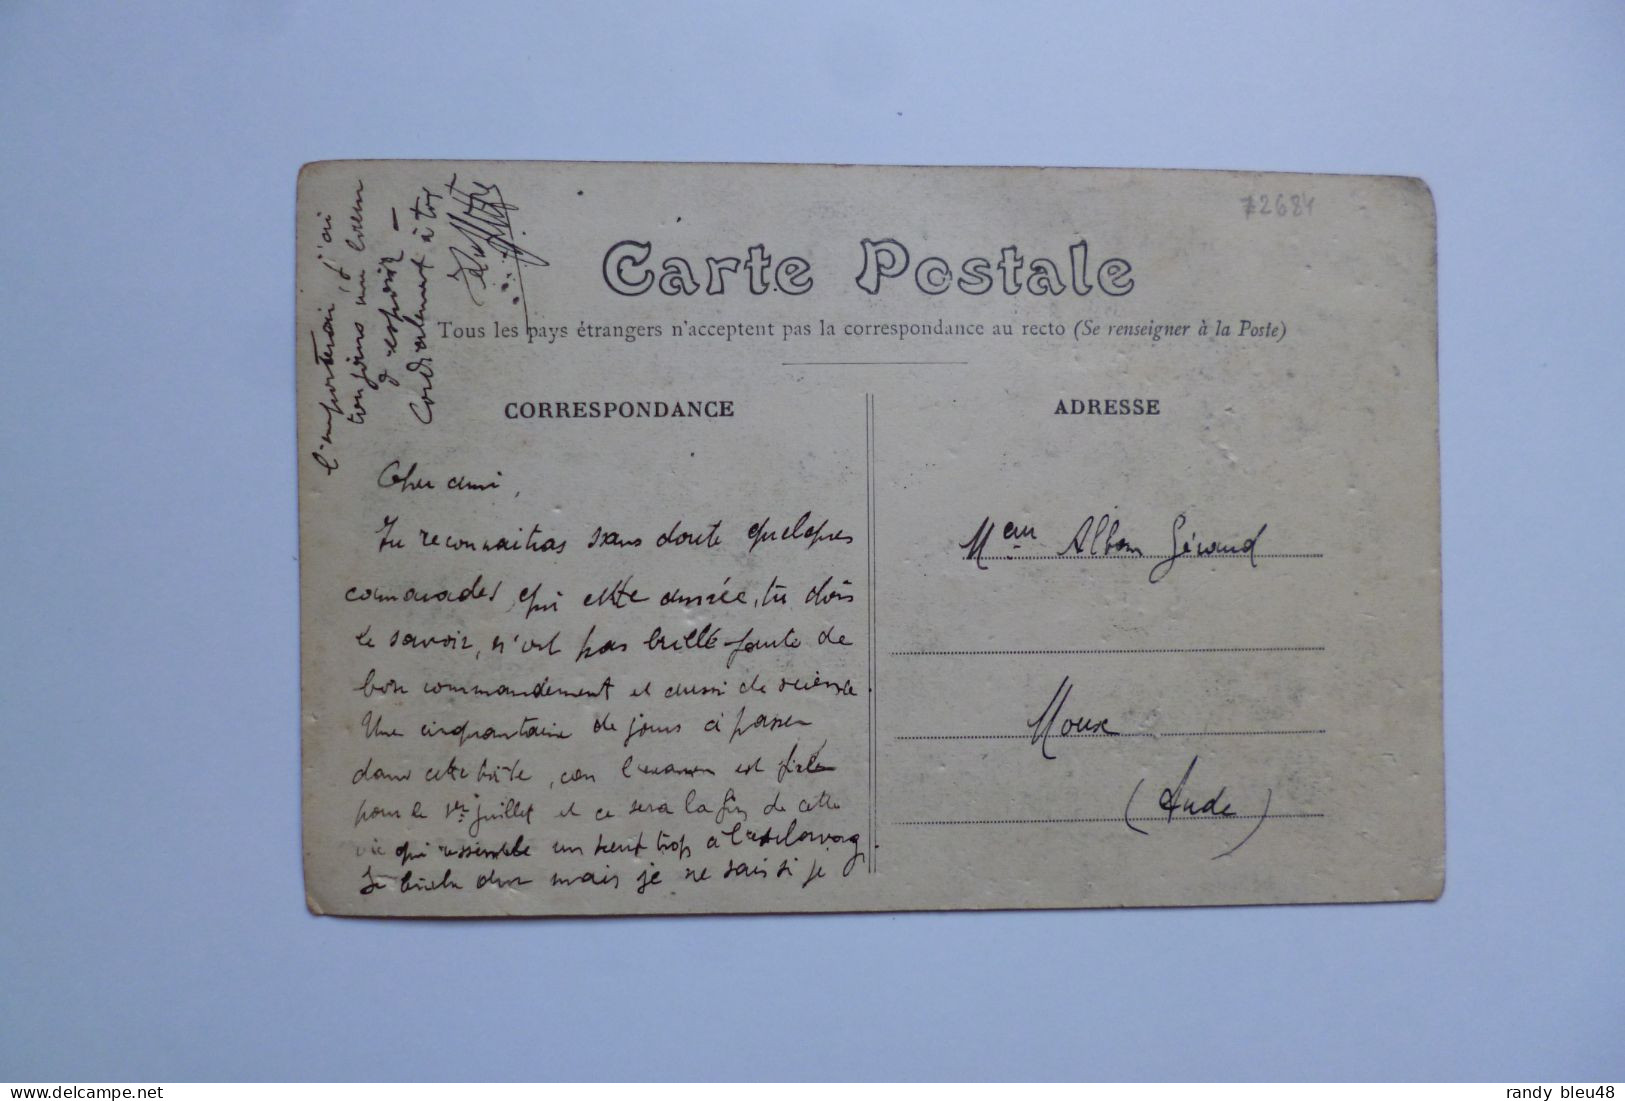 72684
Carte Postale
Tous les pays étrangers n'acceptent pas la correspondance au recto (Se renseigner à la Poste)
CORRESPONDANCE
Cher ami,
Tu reconnaitras sans doute quelques
camarades qui cette année, tu dois
le savoir, n'ont pas brillé faute de
bon commandement et aussi de science.
Une cinquantaine de jours à passer
dans cette boîte, car l'examen est fixé
pour le 1er juillet et ce sera la fin de cette
vie qui ressemble un peu trop à l'esclavag.
Je bûche dur mais je ne sais si je
l'emporterai, j'ai
toujours un brin
d'espoir —
Cordialement à toi
ADRESSE
Mr Alban Géraud
Moux
(Aude)
randy bleu48